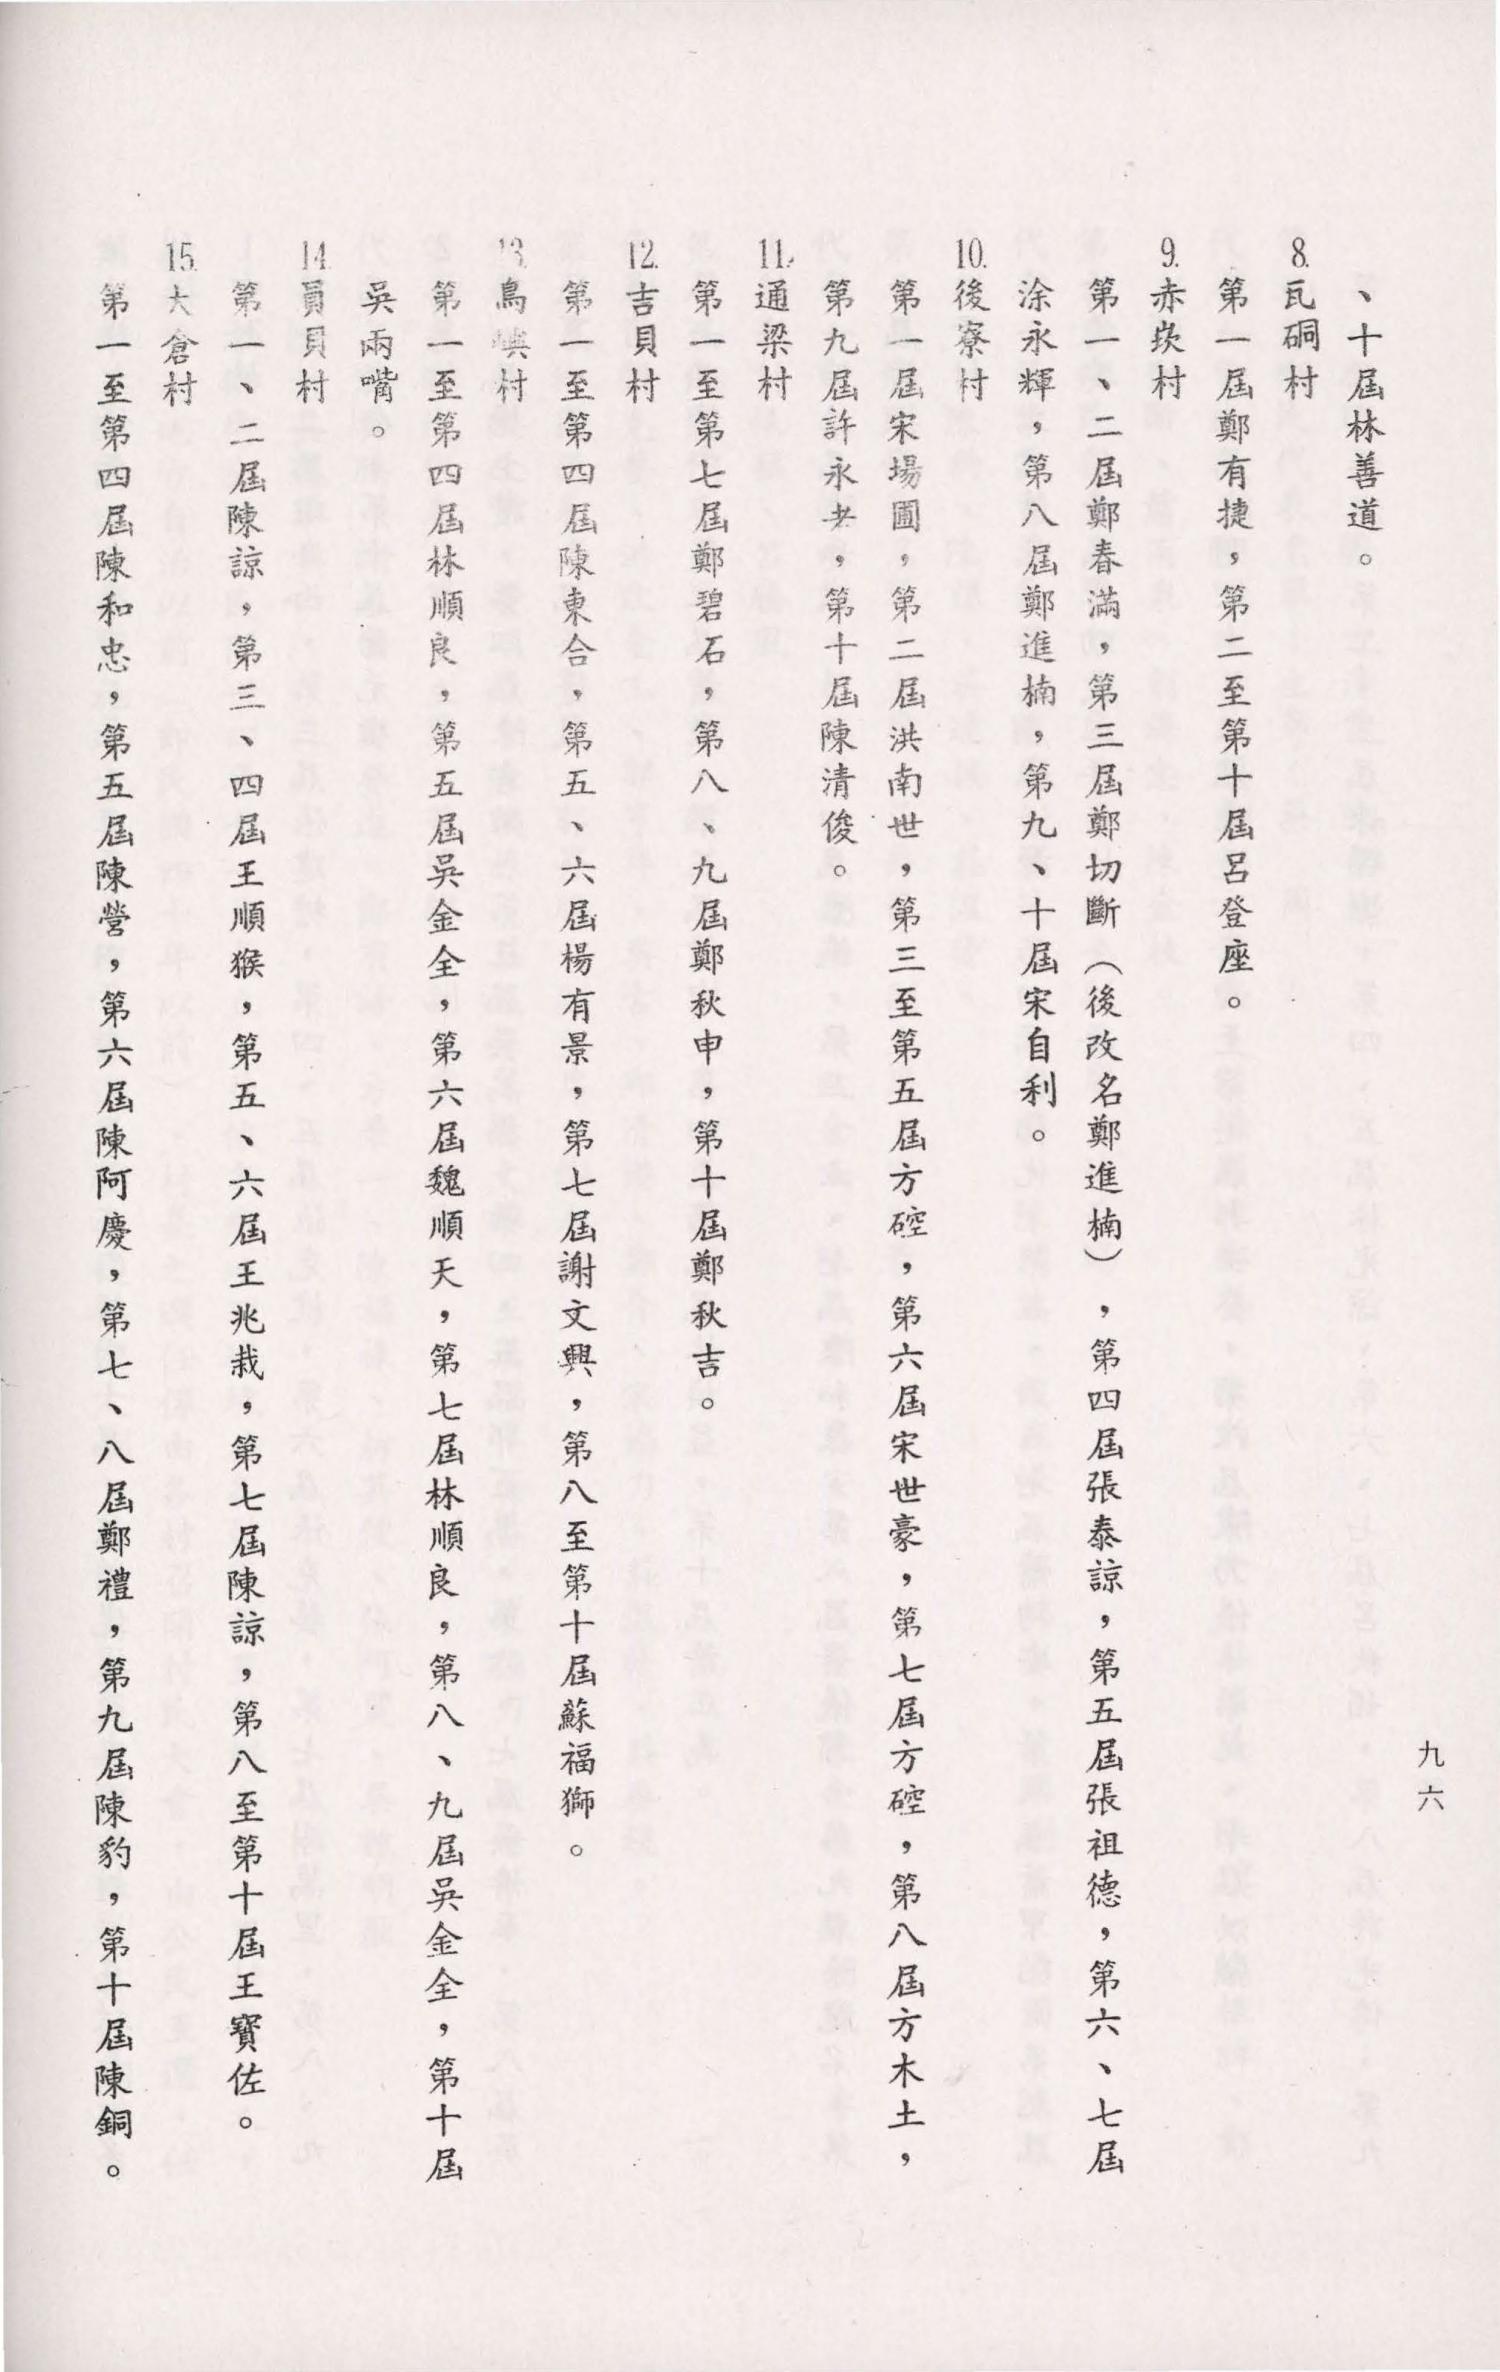 、十屆林善道。
8.瓦硐村
第一屆鄭有捷，第二至第十屆呂登座。
9.赤崁村
第一、二屆鄭春滿，第三屆鄭切斷（後改名鄭進楠），第四屆張泰諒，第五屆張祖德，第六、七屆
涂永輝，第八屆鄭進楠，第九、十屆宋自利。
10.後寮村
第一屆宋場圃，第二屆洪南世，第三至第五屆方硿，第六屆宋世豪，第七屆方硿，第八屆方木土，
第九屆許永老，第十屆陳清俊。
11.通梁村
第一至第七屆鄭碧石，第八、九屆鄭秋申，第十屆鄭秋吉。
12.吉貝村
第一至第四屆陳東合，第五、六屆楊有景，第七屆謝文興，第八至第十屆蘇福獅。
13.鳥嶼村
第一至第四屆林順良，第五屆吳金全，第六屆魏順天，第七屆林順良，第八、九屆吳金全，第十屆
吳兩嘴。
14.員貝村
第一、二屆陳諒，第三、四屆王順猴，第五、六屆王兆栽，第七屆陳諒，第八至第十屆王寶佐。
15.大倉村
第一至第四屆陳和忠，第五屆陳營，第六屆陳阿慶，第七、八屆鄭禮，第九屆陳豹，第十屆陳銅。
九六